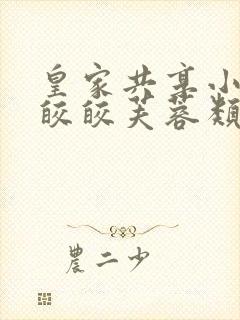 皇家共享小
皎皎芙蓉类
農二少